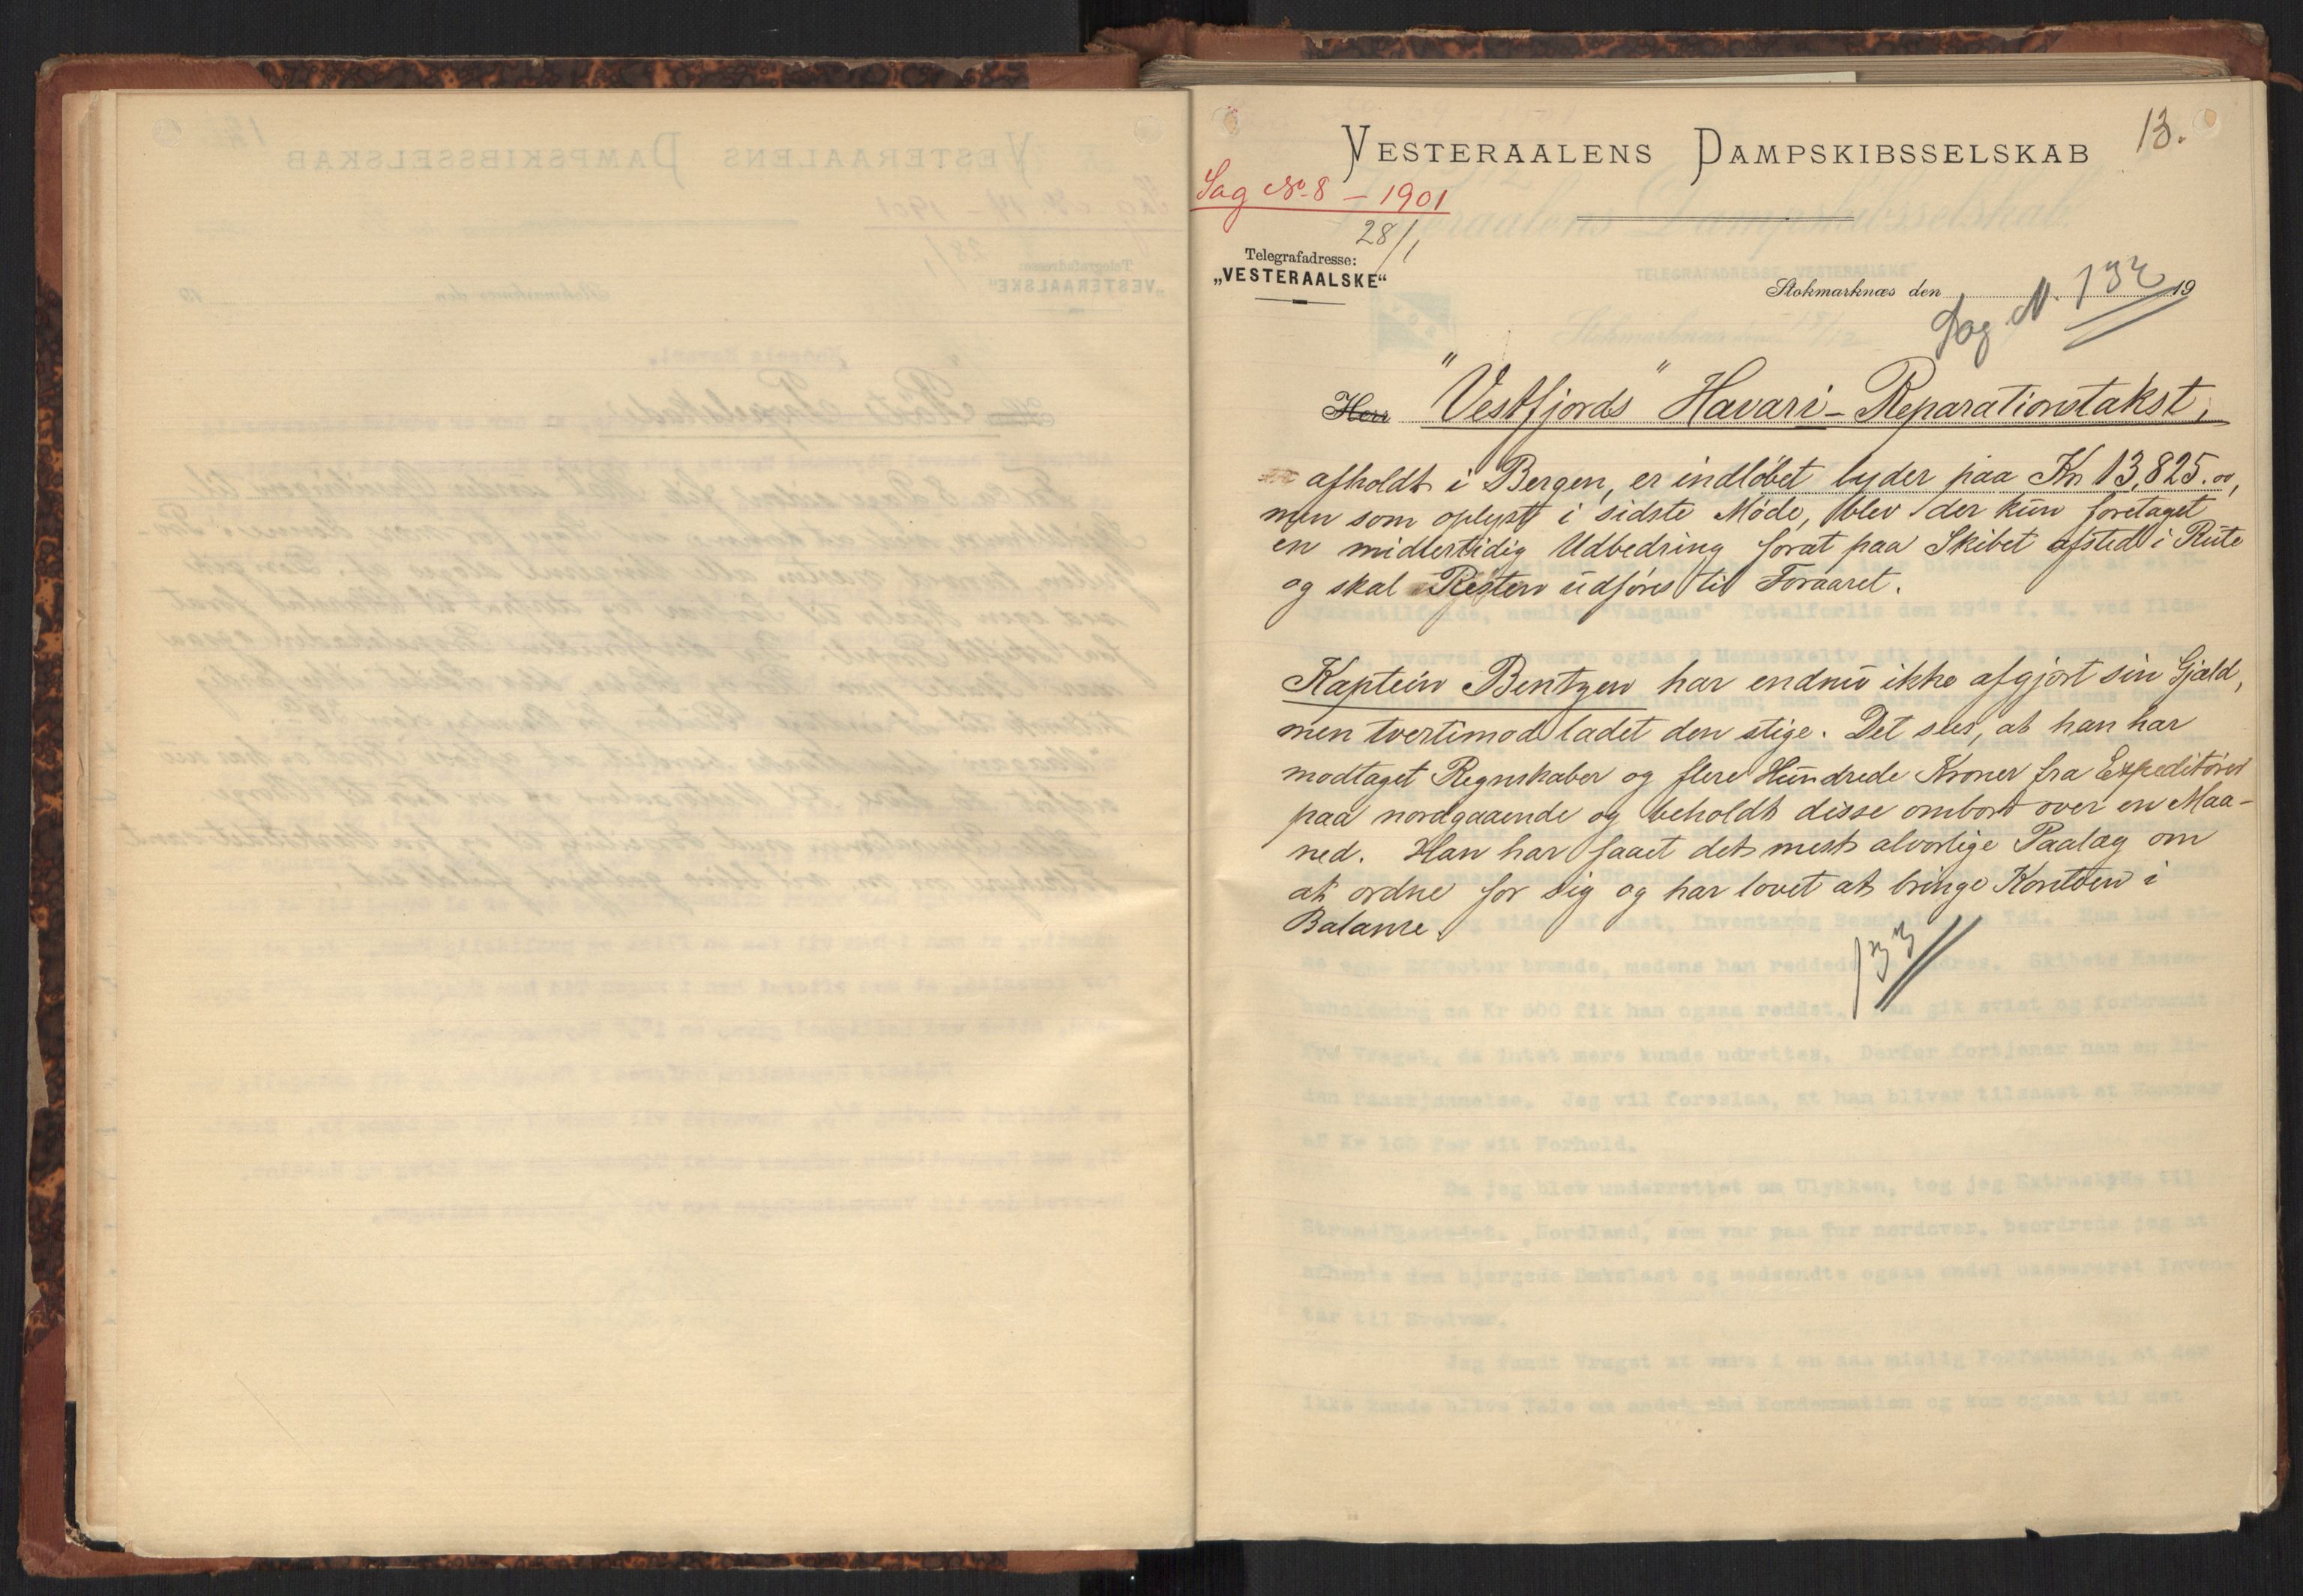 13.
VESTERAALENS DAMPSKIBSSELSKAB
Sag No 8 – 1901
28/1
Telegrafadresse:
„VESTERAALSKE“
Stokmarknæs den 19
Sag N. 132
Herr "Vestfjords" Havari-Reparationstakst,
afholdt i Bergen, er indløbet lyder paa Kr 13,825.00,
men som oplyst i sidste Møde, blev der kun foretaget
en midlertidig Udbedring forat paa Skibet afsted i Rute
og skal Resten udføres til Foraaret.
Kaptein Bentzen har endnu ikke afgjort sin Gjæld,
men tvertimod ladet den stige. Det sees, at han har
modtaget Regnskaber og flere Hundrede Kroner fra Expeditører
paa nordgaaende og beholdt disse ombord over en Maa-
ned. Han har faaet det mest alvorlige Paalæg om
at ordne for sig og har lovet at bringe Kontoen i
Balance.
133